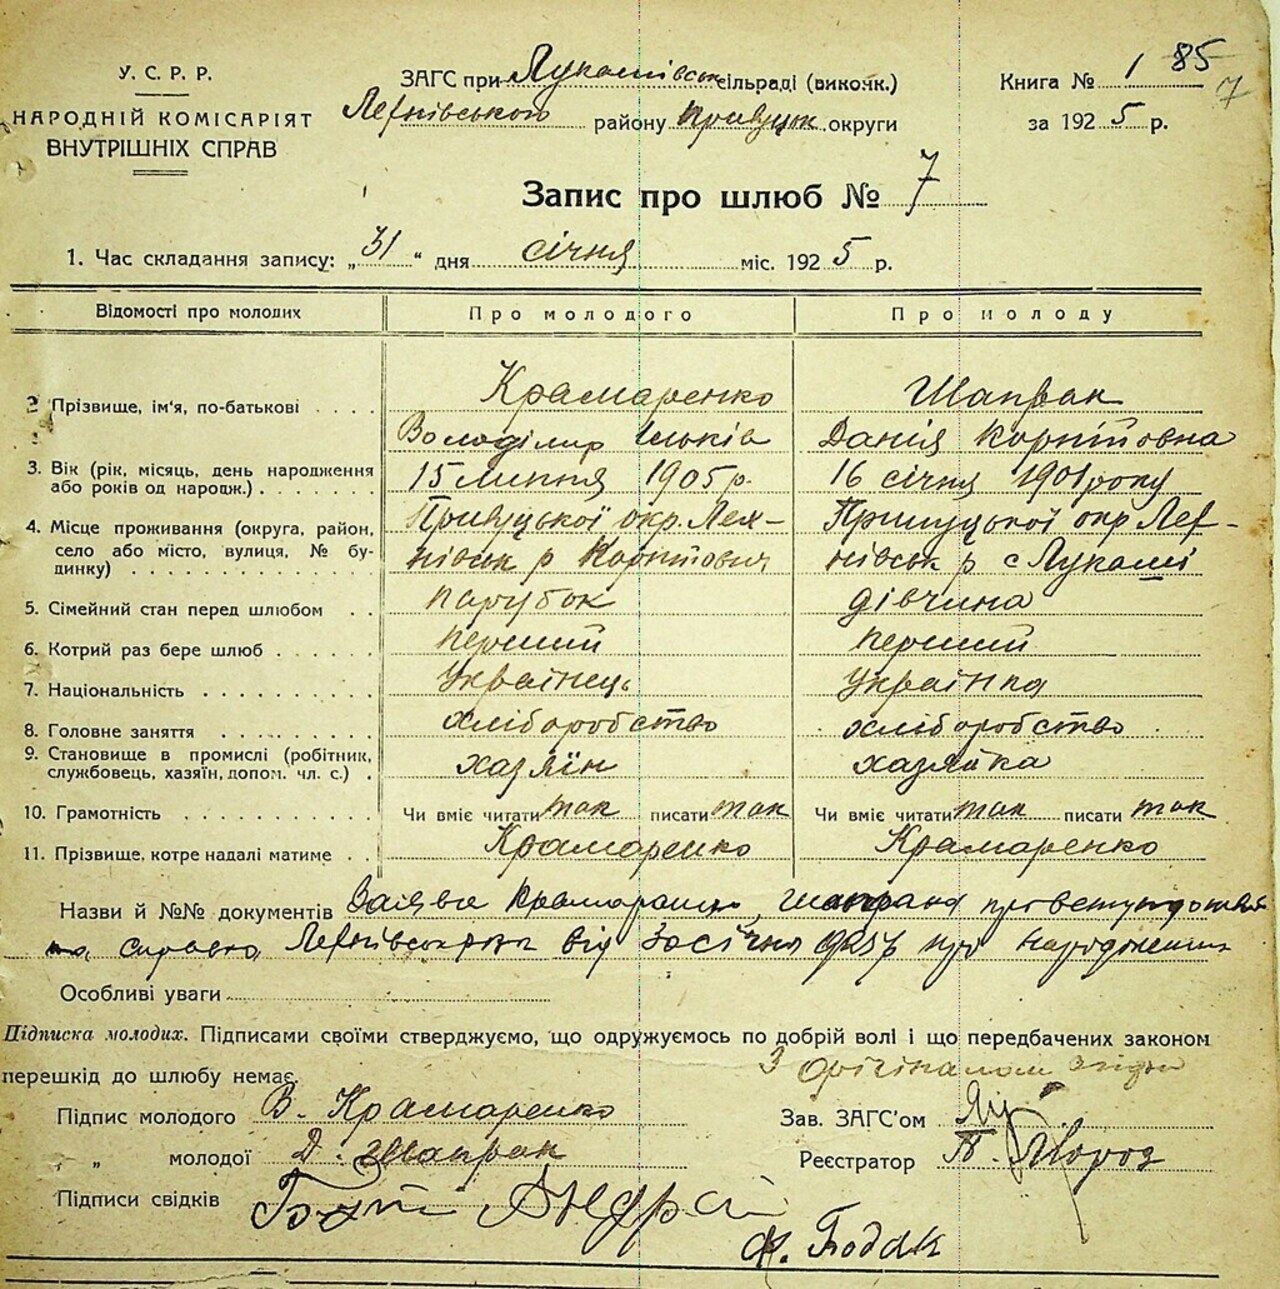 85
7
У. С. Р. Р.
НАРОДНІЙ КОМІСАРІЯТ
ВНУТРІШНІХ СПРАВ
ЗАГС при Лукомівськ сільраді (викочк.)
Лехнівського району Прилуцьк округи
Книга № 1
за 1925 р.
Запис про шлюб № 7
1. Час складання запису: „31“ дня січня міс. 1925 р.
Відомості про молодих Про молодого Про молоду
2 Прізвище, ім'я, по-батькові Крамаренко Шапран
Володімир Ільків Данія Корнітовна
3. Вік (рік, місяць, день народження або років од народж.) 15 липня 1905 р. 16 січня 1901 року
4. Місце проживання (округа, район, Прилуцької окр. Лех- Прилуцької окр Лех-
село або місто, вулиця, № бу-динку) нівськ р нівськ р с Лукомі
5. Сімейний стан перед шлюбом парубок дівчина
6. Котрий раз бере шлюб перший перший
7. Національність Українець Українка
8. Головне заняття хліборобство хліборобство
9. Становище в промислі (робітник, службовець, хазяїн, допом. чл. с.) хазяїн хазяйка
10. Грамотність Чи вміє читати так писати так Чи вміє читати так писати так
11. Прізвище, котре надалі матиме Крамаренко Крамаренко
Назви й №№ документів Заява Крамаренко, Шапрана про вступ до
та справка від 30 січня 1925 р про народження
Особливі уваги
Підписка молодих. Підписами своїми стверджуємо, що одружуємось по добрій волі і що передбачених законом
перешкід до шлюбу немає.
З орігіналом згідно
Підпис молодого В. Крамаренко
Зав. ЗАГС'ом
„ молодої Д. Шапран
Реєстратор П. Мороз
Підписи свідків Бут Андрей
Ф. Бодак